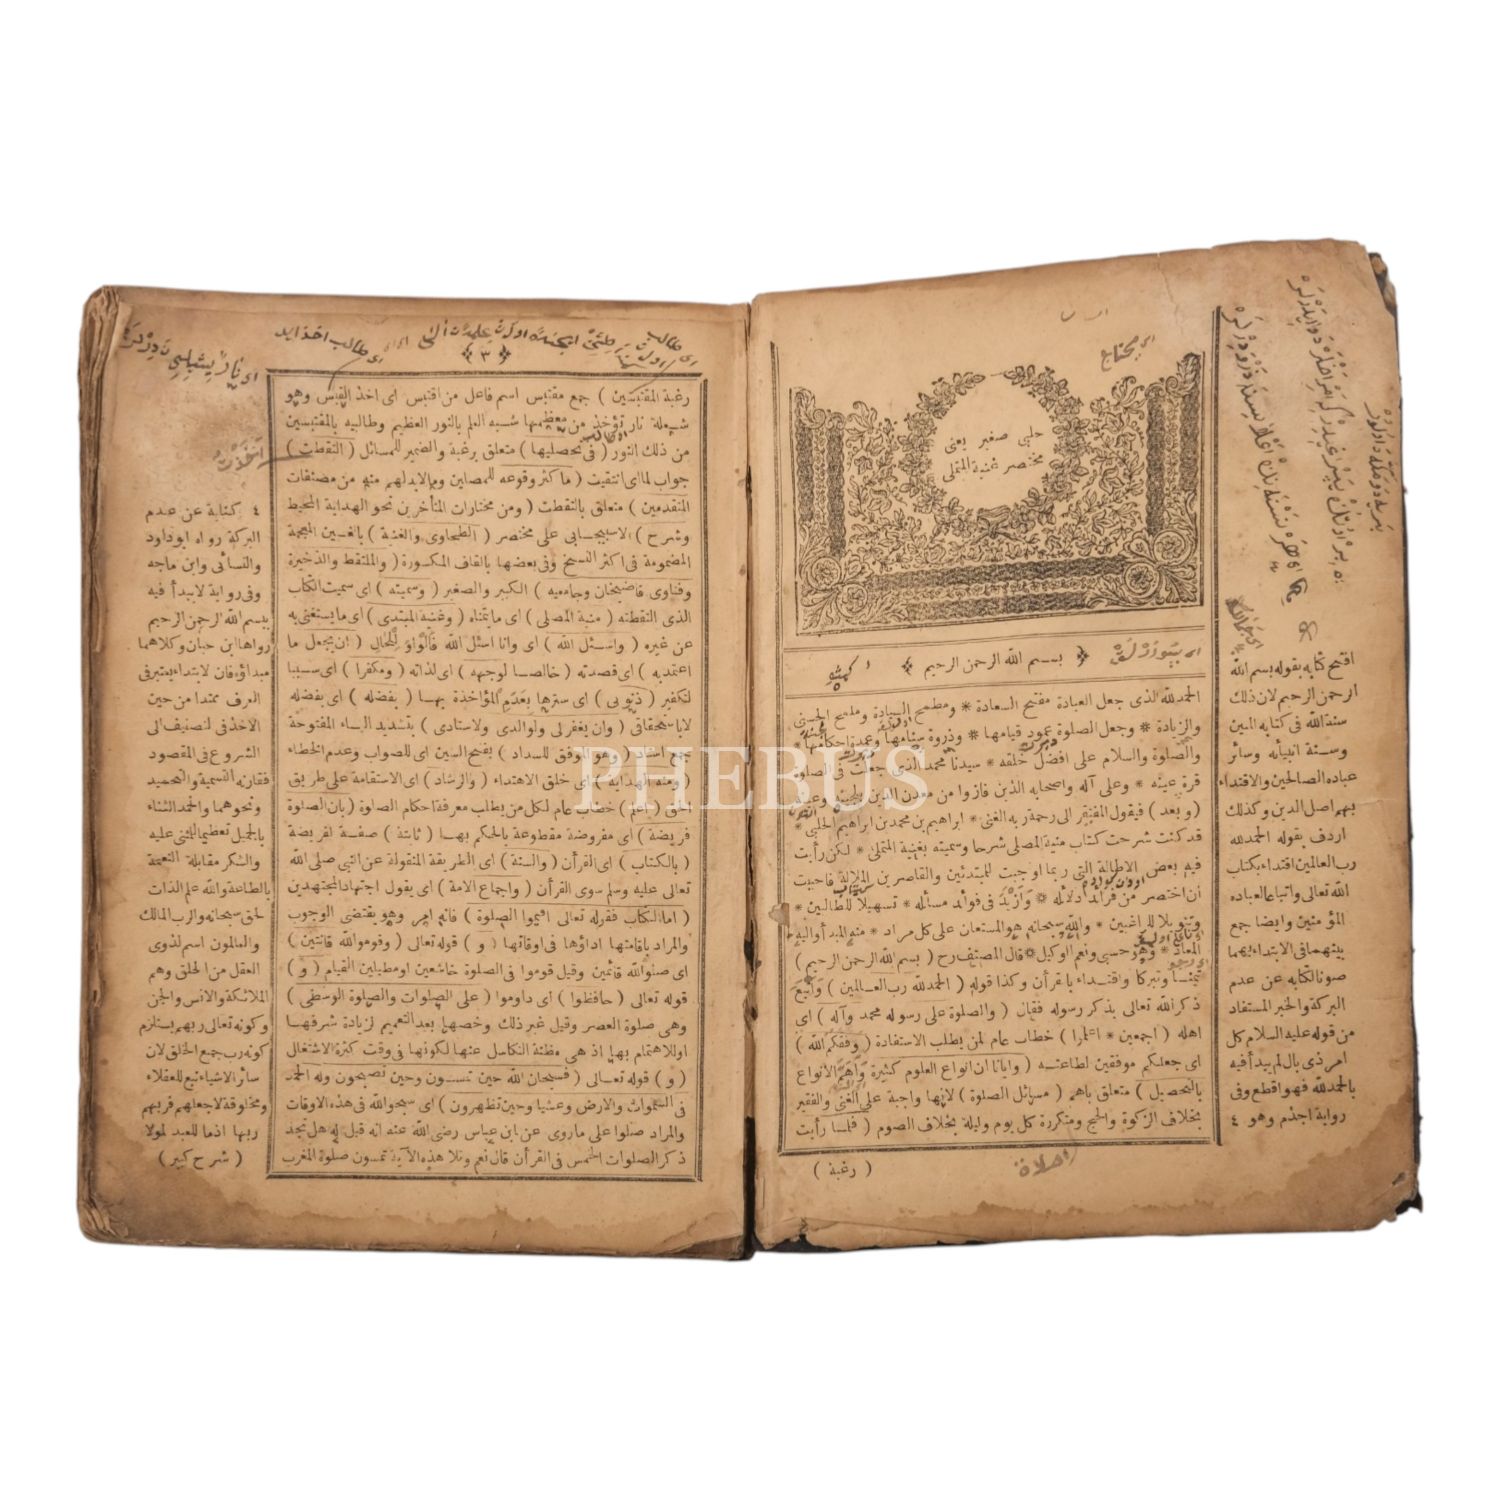 حلبى صغير يعنى
مختصر غنية المتملى
بسم الله الرحمن الرحيم
الحمدلله الذى جعل العبادة مفتح السعادة * ومطمح السيادة وملمح الحسنى
والزيادة * وجعل الصلوة عمود قيامها * وذروة سنامها وعمدة احكامها *
والصلوة والسلام على افضل خلقه * سيدنا محمد الذى جعلت فى الصلوة
قرة عينه * وعلى آله واصحابه الذين فازوا من معدن الدين بلجينه وعينه
(وبعد) فيقول المفتقر الى رحمة ربه الغنى * ابراهيم بن محمد بن ابراهيم الحلبى *
قد كنت شرحت كتاب منية المصلى شرحا وسميته بغنية المتملى * لكن رأيت
فيه بعض الاطالة التى ربما اوجبت للمبتدئين والقاصرين الملالة فاحببت
ان اختصر من فرائد دلائله * وازيد فى فوائد مسائله * تسهيلا للطالبين *
وتنويلا للراغبين * والله سبحانه هو المستعان على كل مراد * منه المبدأ واليه
المعاد * وهو حسبى ونعم الوكيل * قال المصنف رح (بسم الله الرحمن الرحيم)
تيمنا وتبركا واقتداء بالقرآن وكذا قوله (الحمدلله رب العالمين) واتبع
ذكر الله تعالى بذكر رسوله فقال (والصلوة على رسوله محمد وآله) اى
اهله (اجمعين * اعلم) خطاب عام لمن يطلب الاستفادة (وفقكم الله)
اى جعلكم موفقين لطاعته (وايانا ان انواع العلوم كثيرة واهم الانواع
بالتحصيل) متعلق باهم (مسائل الصلوة) لانها واجبة على الغنى والفقير
بخلاف الزكوة والحج ومتكررة كل يوم وليلة بخلاف الصوم (فلما رأيت
(رغبة)
افتتح كتابه بقوله بسم الله
الرحمن الرحيم لان ذلك
سنة الله فى كتابه المبين
وسنة انبيائه وسائر
عباده الصالحين والاقتداء
بهم اصل الدين وكذلك
اردف بقوله الحمدلله
رب العالمين اقتداء بكتاب
الله تعالى واتباعا لعباده
المؤمنين وايضا جمع
بينهما فى الابتداء بهما
صونا لكتابه عن عدم
البركة والخبر المستفاد
من قوله عليه السلام كل
امر ذى بال لم يبدأ فيه
بالحمدلله فهو اقطع وفى
رواية اجذم وهو ٤
٣
رغبة المقتبسين) جمع مقتبس اسم فاعل من اقتبس اى اخذ القبس وهو
شعلة نار تؤخذ من معظمها شبه العلم بالنور العظيم وطالبيه بالمقتبسين
من ذلك النور (فى تحصيلها) متعلق برغبة والضمير للمسائل (التقطت)
جواب لما اى انتقيت (ما كثر وقوعه للمصلين وما لابد لهم منه من مصنفات
المتقدمين) متعلق بالتقطت (ومن مختارات المتأخرين نحو الهداية المحيط
وشرح) الاسبيجابى على مختصر (الطحاوى والغنية) بالغين المعجمة
المضمومة فى اكثر النسخ وفى بعضها بالقاف المكسورة (والملتقط والذخيرة
وفتاوى قاضيخان وجامعيه) الكبير والصغير (وسميته) اى سميت الكتاب
الذى التقطته (منية المصلى) اى ما يتمناه (وغنية المبتدى) اى ما يستغنى به
عن غيره (واسئل الله) اى وانا اسئل الله فالواو للحال (ان يجعل ما
اعتمد به) اى قصدته (خالصا لوجهه) اى لذاته (ومكفرا) اى ساترا
لتكفير (ذنوبى) اى سترها بعدم المؤاخذة بها (بفضله) اى بفضله
لا باستحقاقى (وان يغفر لى ولوالدى ولاستادى) بتشديد الياء المفتوحة
جمع استاد (وهو الموفق للسداد) بفتح السين اى للصواب وعدم الخطاء
(ومنه الهداية) اى خلق الاهتداء (والرشاد) اى الاستقامة على طريق
الحق (اعلم) خطاب عام لكل من يطلب معرفة احكام الصلوة (بان الصلوة
فريضة) اى مفروضة مقطوعة بالحكم بها (ثابتة) صفة لفريضة
(بالكتاب) اى القرآن (والسنة) اى الطريقة المنقولة عن النبى صلى الله
تعالى عليه وسلم سوى القرآن (واجماع الامة) اى يقول اجتهاد المجتهدين
(اما الكتاب فقوله تعالى اقيموا الصلوة) فانه امر وهو يقتضى الوجوب
والمراد باقامتها اداؤها فى اوقاتها (و) قوله تعالى (وقوموا لله قانتين)
اى صلوا لله قائمين وقيل قوموا فى الصلوة خاشعين او مطيلين القيام (و)
قوله تعالى (حافظوا) اى داوموا (على الصلوات والصلوة الوسطى)
وهى صلوة العصر وقيل غير ذلك وخصها بعد التعميم لزيادة شرفها
او للاهتمام بها اذ هى مظنة التكاسل عنها لكونها فى وقت كثرة الاشتغال
(و) قوله تعالى (فسبحان الله حين تمسون وحين تصبحون وله الحمد
فى السموات والارض وعشيا وحين تظهرون) اى سبحوا الله فى هذه الاوقات
والمراد صلوا على ما روى عن ابن عباس رضى الله عنه انه قيل له هل نجد
ذكر الصلوات الخمس فى القرآن قال نعم وتلا هذه الآية تمسون صلوة المغرب
٤ كتابة عن عدم
البركة رواه ابو داود
والنسائى وابن ماجه
وفى رواية لا يبدأ فيه
ببسم الله الرحمن الرحيم
رواها ابن حبان وكلاهما
مبداؤه فان الابتداء يعتبر فى
العرف ممتدا من حين
الاخذ فى التصنيف الى
الشروع فى المقصود
فقارنه التسمية والتحميد
ونحوهما والحمد الثناء
بالجميل تعظيما للمثنى عليه
والشكر مقابلة النعمة
بالطاعة والله علم الذات
لحق سبحانه والرب المالك
والعالمون اسم لذوى
العقل من الخلق وهم
الملائكة والانس والجن
وكونه تعالى ربهم يستلزم
كونه رب جميع الخلق لان
سائر الاشياء تبع للعقلاء
ومخلوقة لاجلهم فربهم
ربها اذ ما للعبد لمولاه
(شرح كبير)
PHEBUS